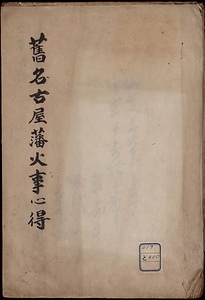 舊名古屋藩火事心得